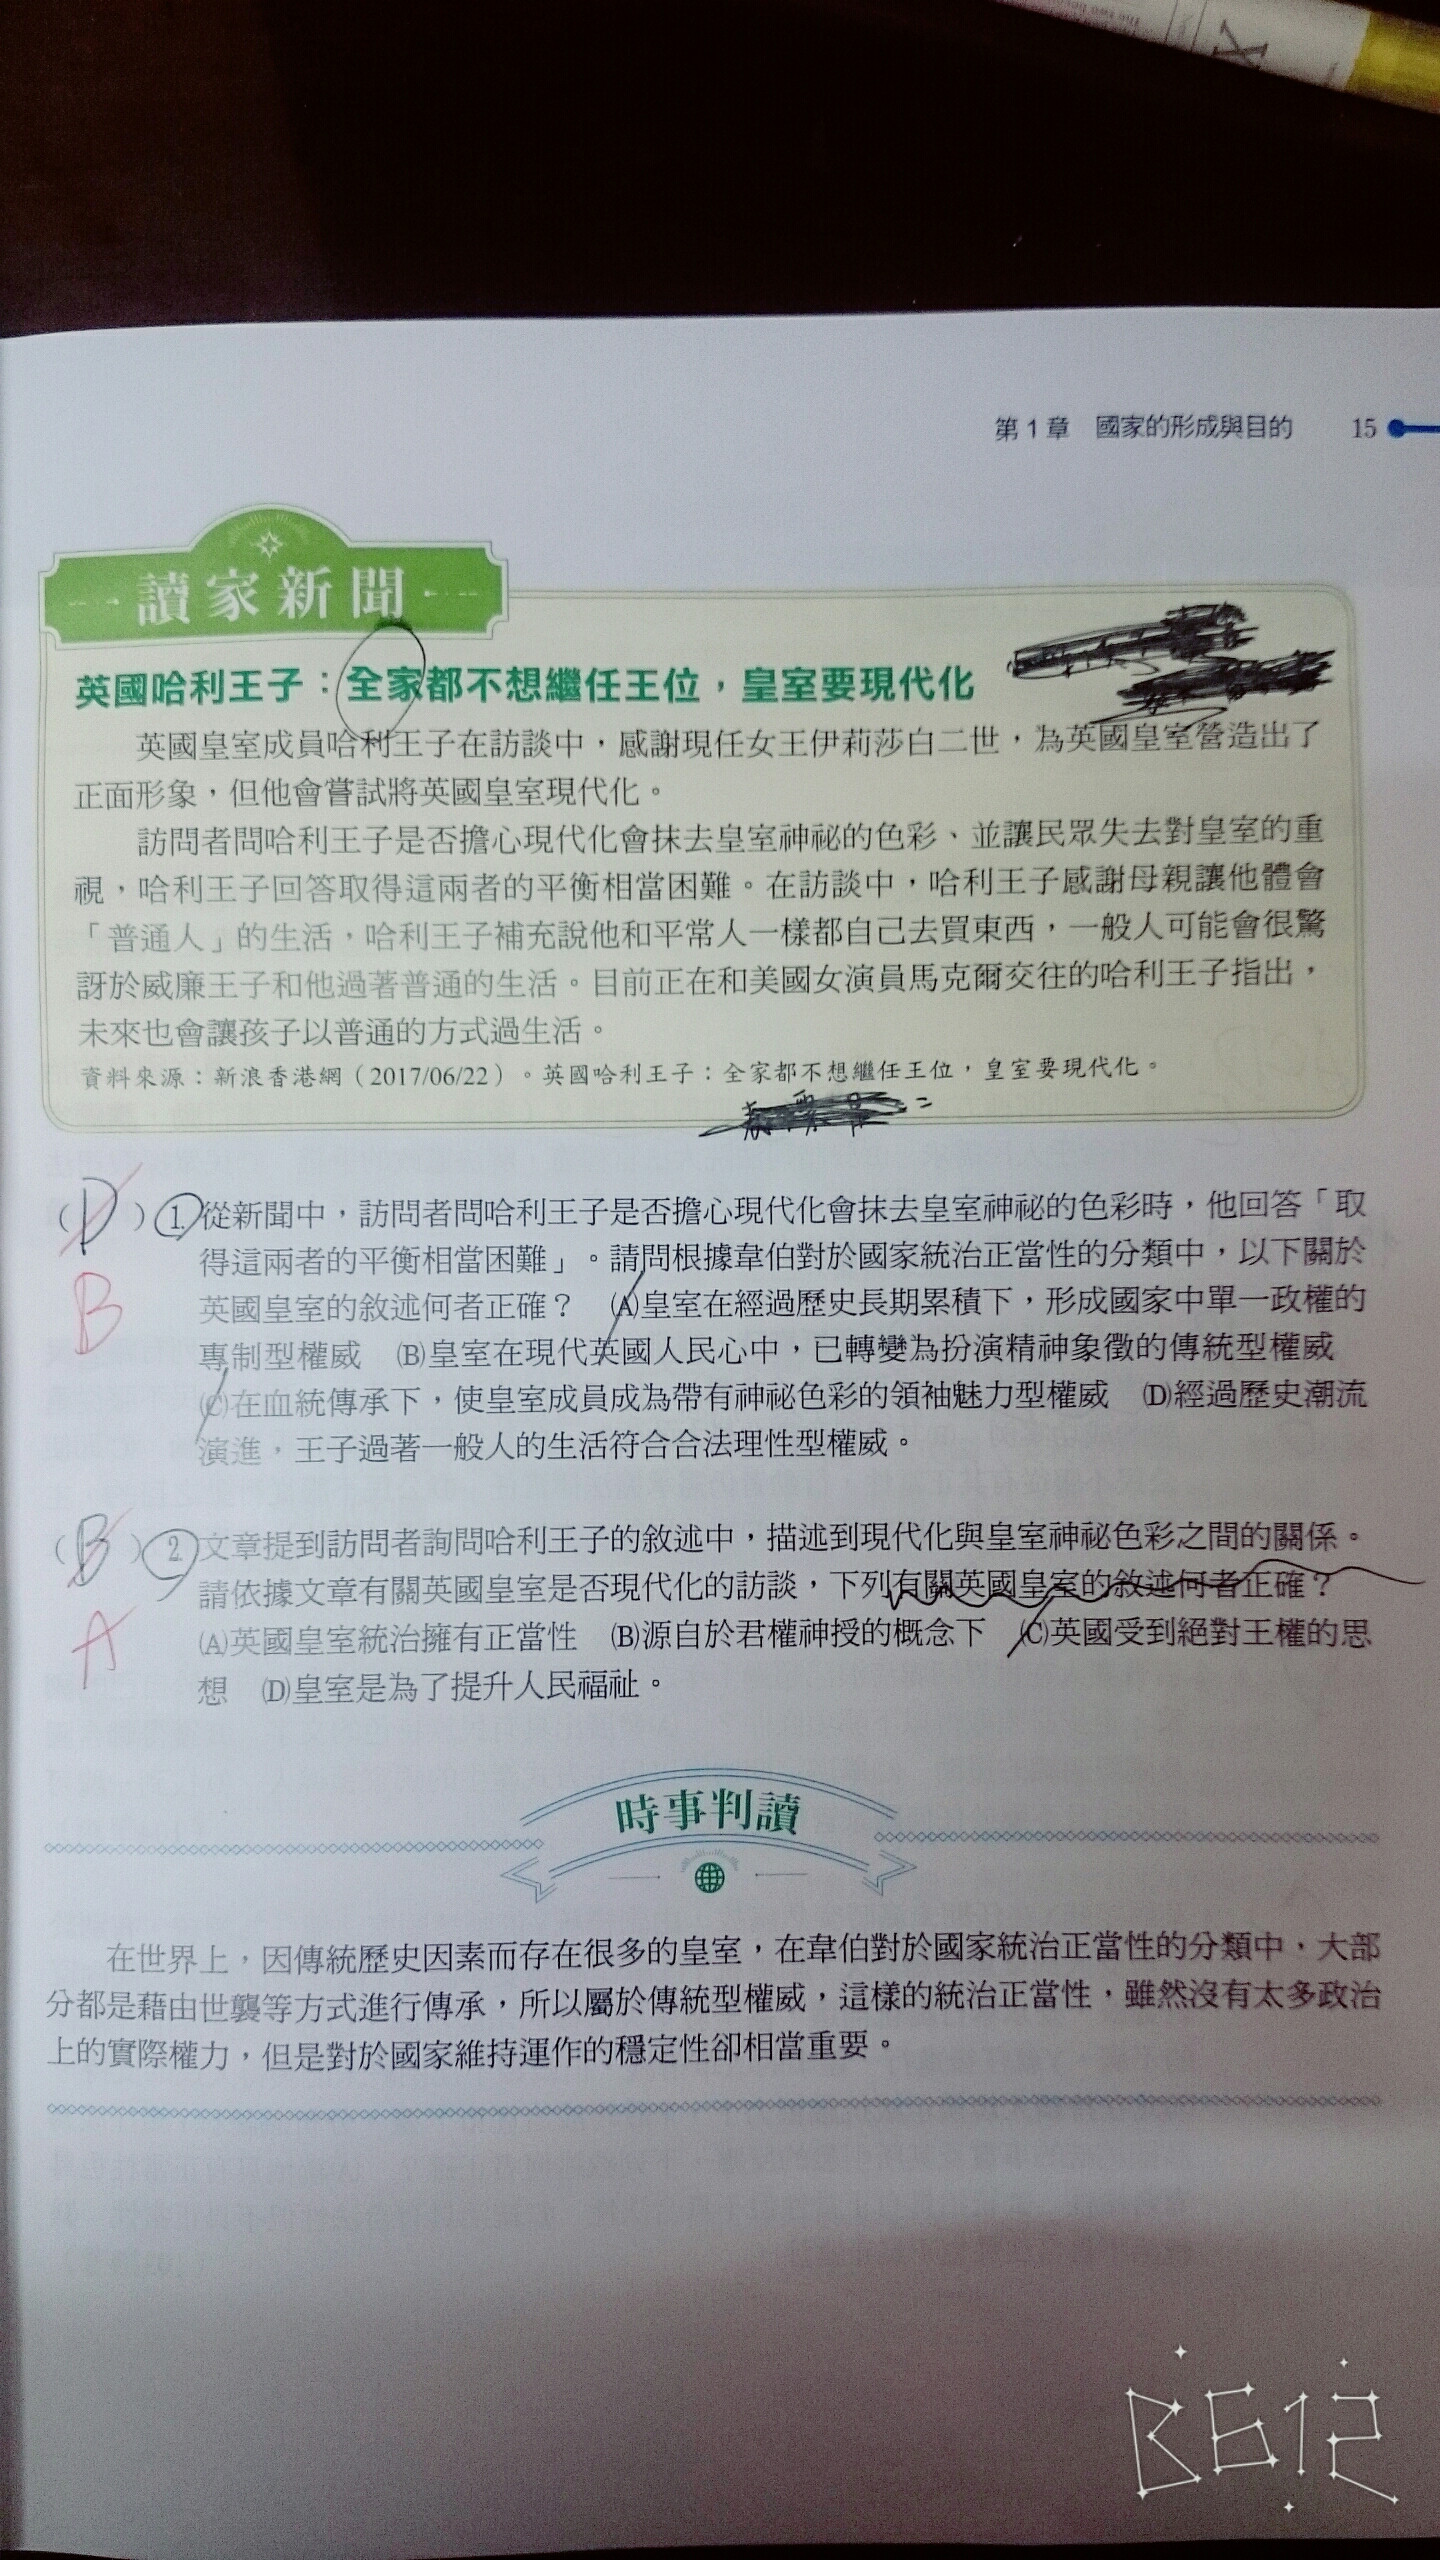 第1章 國家的形成與目的 15
讀家新聞
英國哈利王子：全家都不想繼任王位，皇室要現代化
英國皇室成員哈利王子在訪談中，感謝現任女王伊莉莎白二世，為英國皇室營造出了
正面形象，但他會嘗試將英國皇室現代化。
訪問者問哈利王子是否擔心現代化會抹去皇室神祕的色彩、並讓民眾失去對皇室的重
視，哈利王子回答取得這兩者的平衡相當困難。在訪談中，哈利王子感謝母親讓他體會
「普通人」的生活，哈利王子補充說他和平常人一樣都自己去買東西，一般人可能會很驚
訝於威廉王子和他過著普通的生活。目前正在和美國女演員馬克爾交往的哈利王子指出，
未來也會讓孩子以普通的方式過生活。
資料來源：新浪香港網（2017/06/22）。英國哈利王子：全家都不想繼任王位，皇室要現代化。
（D）1.從新聞中，訪問者問哈利王子是否擔心現代化會抹去皇室神祕的色彩時，他回答「取
得這兩者的平衡相當困難」。請問根據韋伯對於國家統治正當性的分類中，以下關於
B
英國皇室的敘述何者正確？ (A)皇室在經過歷史長期累積下，形成國家中單一政權的
專制型權威 (B)皇室在現代英國人民心中，已轉變為扮演精神象徵的傳統型權威
(C)在血統傳承下，使皇室成員成為帶有神祕色彩的領袖魅力型權威 (D)經過歷史潮流
演進，王子過著一般人的生活符合合法理性型權威。
（B）2.文章提到訪問者詢問哈利王子的敘述中，描述到現代化與皇室神祕色彩之間的關係。
請依據文章有關英國皇室是否現代化的訪談，下列有關英國皇室的敘述何者正確？
A
(A)英國皇室統治擁有正當性 (B)源自於君權神授的概念下 (C)英國受到絕對王權的思
想 (D)皇室是為了提升人民福祉。
時事判讀
在世界上，因傳統歷史因素而存在很多的皇室，在韋伯對於國家統治正當性的分類中，大部
分都是藉由世襲等方式進行傳承，所以屬於傳統型權威，這樣的統治正當性，雖然沒有太多政治
上的實際權力，但是對於國家維持運作的穩定性卻相當重要。
B612